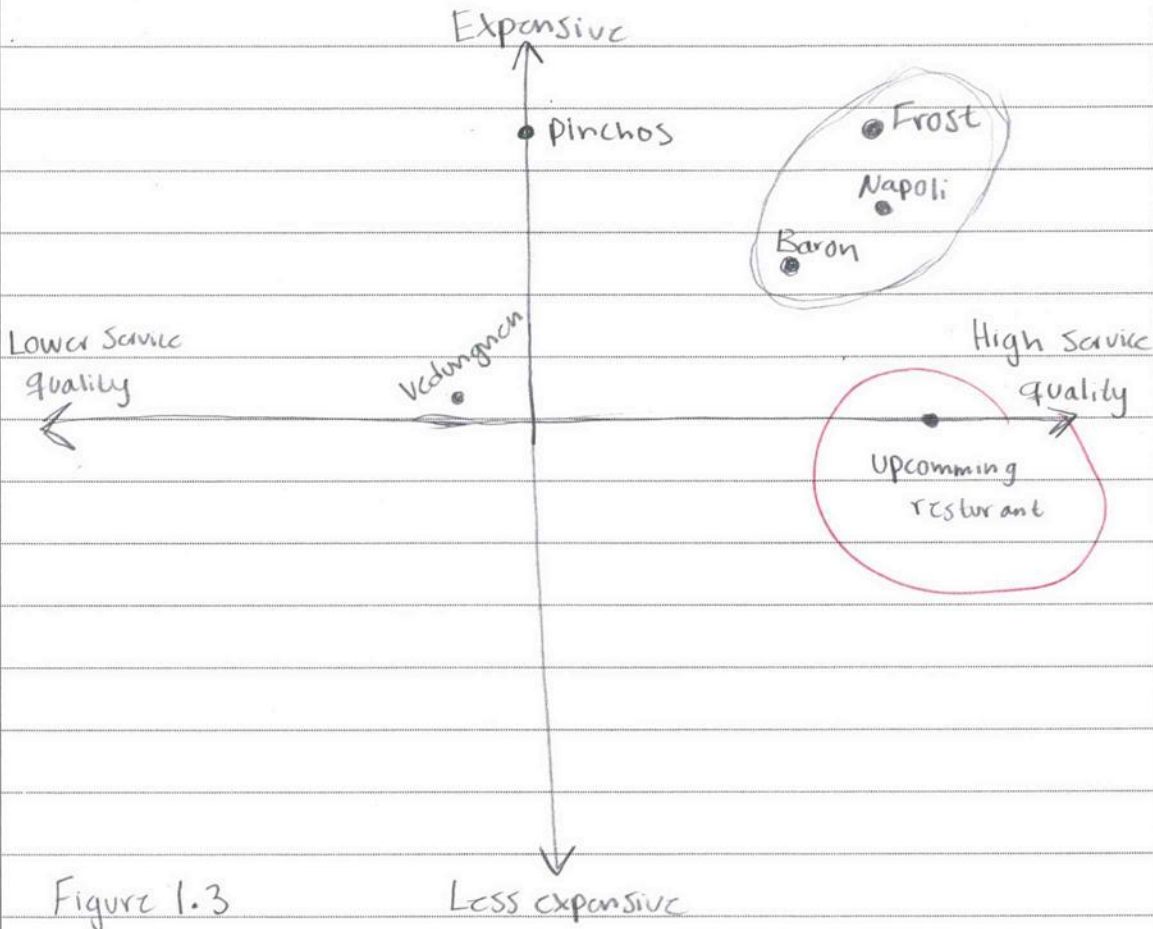 Expensive
Pinchos
Frost
Napoli
Baron
Lower Service
quality
High service
quality
upcomming
resturant
Figure 1.3
Less expensive